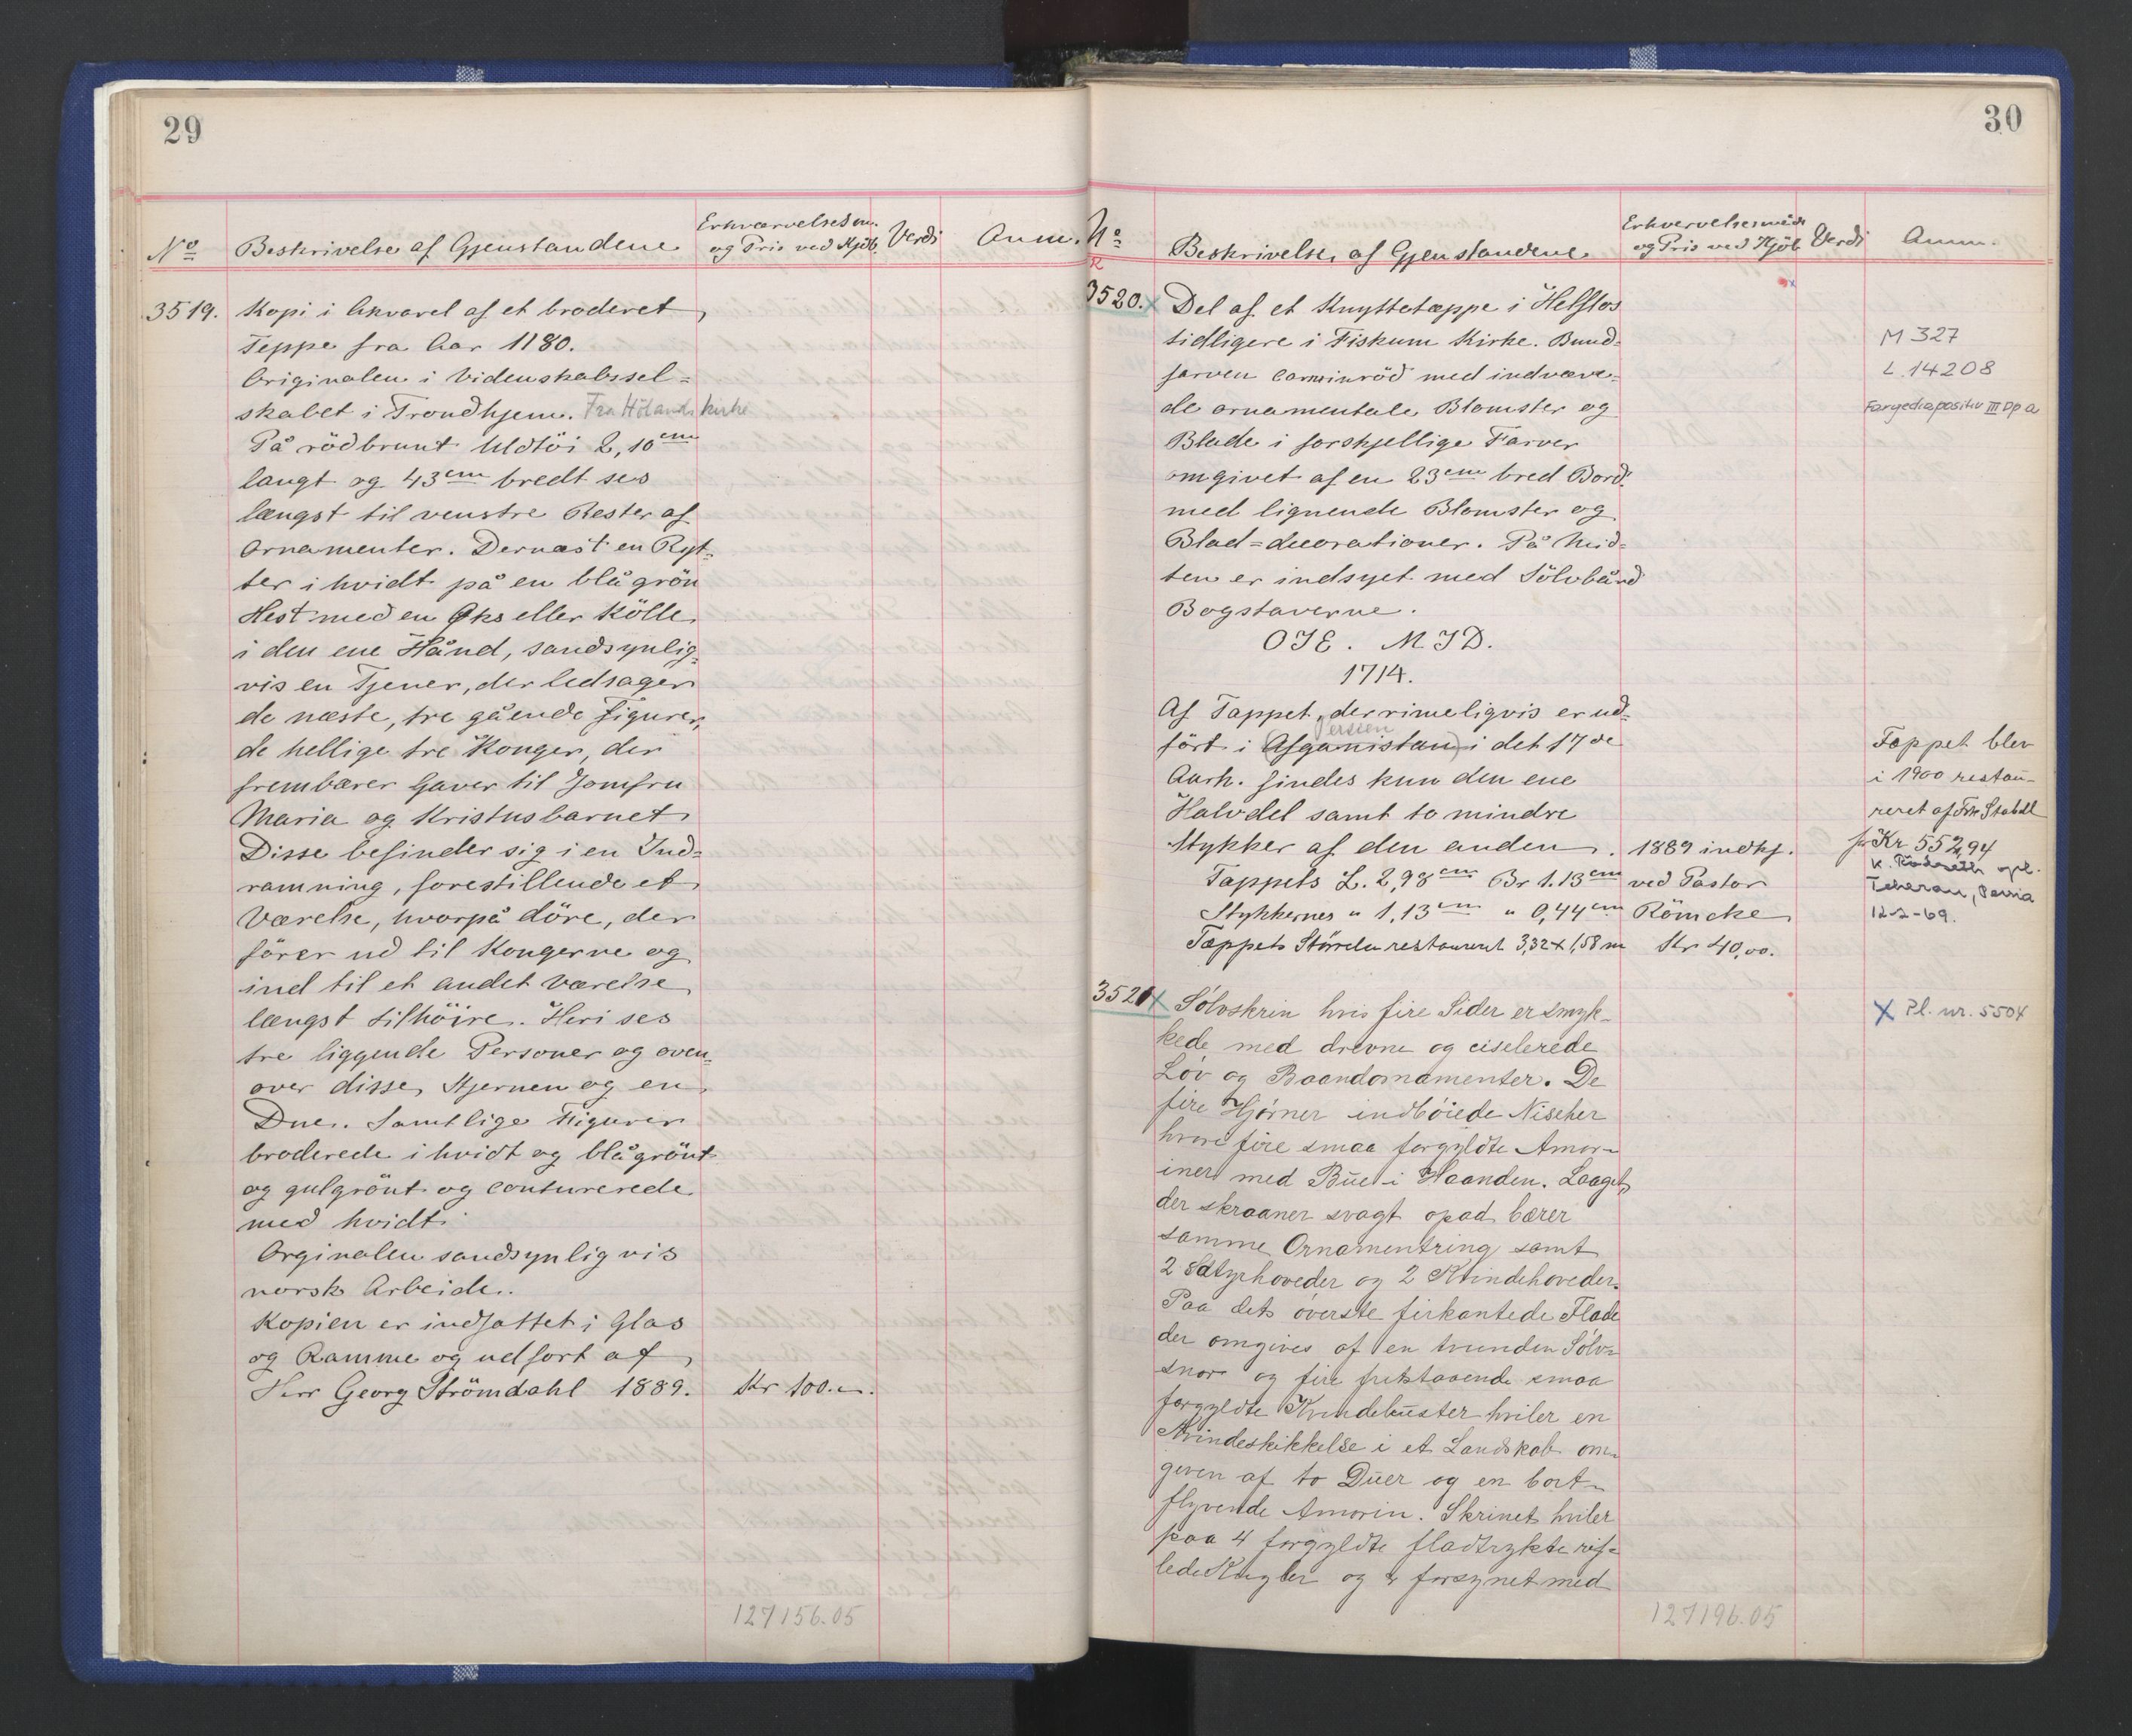 29
No
Beskrivelse af Gjenstandene
Erhværvelsesm.
og Pris ved Kjöb.
Verdi
Anm.
3519.
Kopi i Akvarel af et broderet
Teppe fra Aar 1180.
Originalen i Videnskabssel=
skabet i Trondhjem. Fra Hölands kirke
På rödbrunt Uldtöi 2,10 cm
langt og 43 cm bredt ses
længst til venstre Rester af
Ornamenter. Dernæst en Ryt-
ter i hvidt på en blågrön
Hest med en Öks eller Kölle
i den ene Hånd, sandsynlig-
vis en Tjener, der ledsager
de næste, tre gående Figurer,
de hellige tre Konger, der
frembærer Gaver til Jomfru
Maria og Kristusbarnet
Disse befinder sig i en Ind=
ramning, forestillende et
Værelse, hvorpå döre, der
förer ud til Kongerne og
ind til et andet værelse
længst tilhöire. Heri ses
tre liggende Personer og oven-
over disse, Stjernen og en
Due. Samtlige Figurer
broderede i hvidt og blågrönt
og gulgrönt og conturerede
med hvidt.
Orginalen sandsynligvis
norsk Arbeide.
Kopien er indfattet i Glas
og Ramme og udfört af
Herr Georg Strömdahl 1889.
Kr 100.
127156.05
30
No
Beskrivelse af Gjenstandene
Erhvervelsesmåde
og Pris ved Kjöb
Verdi
Anm.
3520. x
Del af et Knyttetæppe i Helflos
tidligere i Fiskum Kirke. Bund=
farven carminröd med indvæve=
de ornamentale Blomster og
Blade i forskjellige Farver
omgivet af en 23 cm bred Bord
med lignende Blomster og
Blad=decorationer. På Mid=
ten er indsyet med Sölvbånd
Bogstaverne.
OIE. M.ID.
1714.
Af Tæppet, der rimeligvis er ud=
Persien
fört i (Afganistan) i det 17de
Aarh. findes kun den ene
Halvdel samt to mindre
Stykker af den anden.
Tæppets L. 2,98 cm Br 1.13 cm
Stykkernes " 1,13 cm " 0,44 cm
Tæppets Störrelse restaureret 3,32 x 1,58 m
1889 indkj.
ved Pastor
Römcke
Kr 40,00.
M 327
L.14208
Fargediapositiv III Dp a
Tæppet blev
i 1900 restau-
reret af Frk Stabell
for Kr 552,94
Teheran, Persia
12-2-69.
3521 x
Sölvskrin hvis fire Sider er smyk-
kede med drevne og ciselerede
Löv og Baandornamenter. De
fire Hjörner indböiede Nischer
hvori fire smaa forgyldte Amor-
iner med Bue i Haanden. Laaget,
der skraaner svagt opad bærer
samme Ornamentring samt
2 Satyrhoveder og 2 Kvindehoveder.
Paa dets överste firkantede Flade
der omgives af en tvunden Sölv-
snor og fire fritstaaende smaa
forgyldte Kvindebuster hviler en
Kvindeskikkelse i et Landskab om-
given af to Duer og en bort-
flyvende Amorin. Skrinet hviler
paa 4 forgyldte fladtrykte rif-
lede Kugler og er forsynet med
x Pl. nr. 5504
127196.05